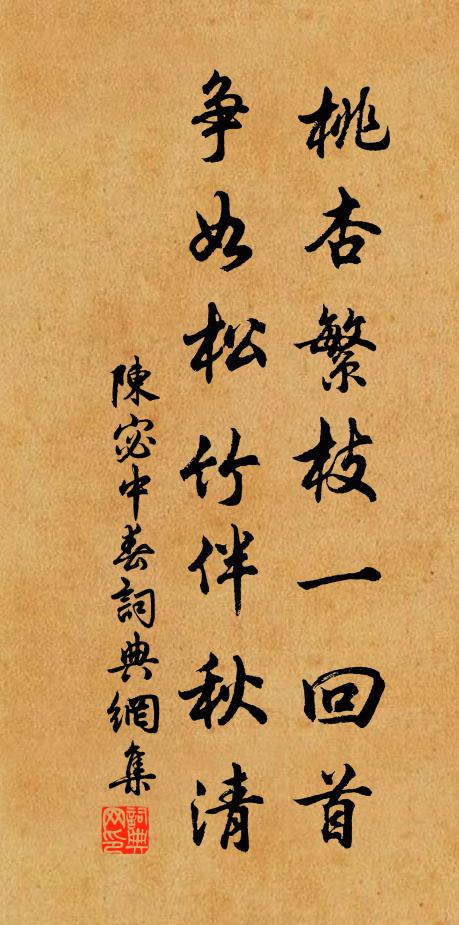 桃杏繁枝一回首
争如松竹伴秋清
陳宓中春詞典網集
詞典网印